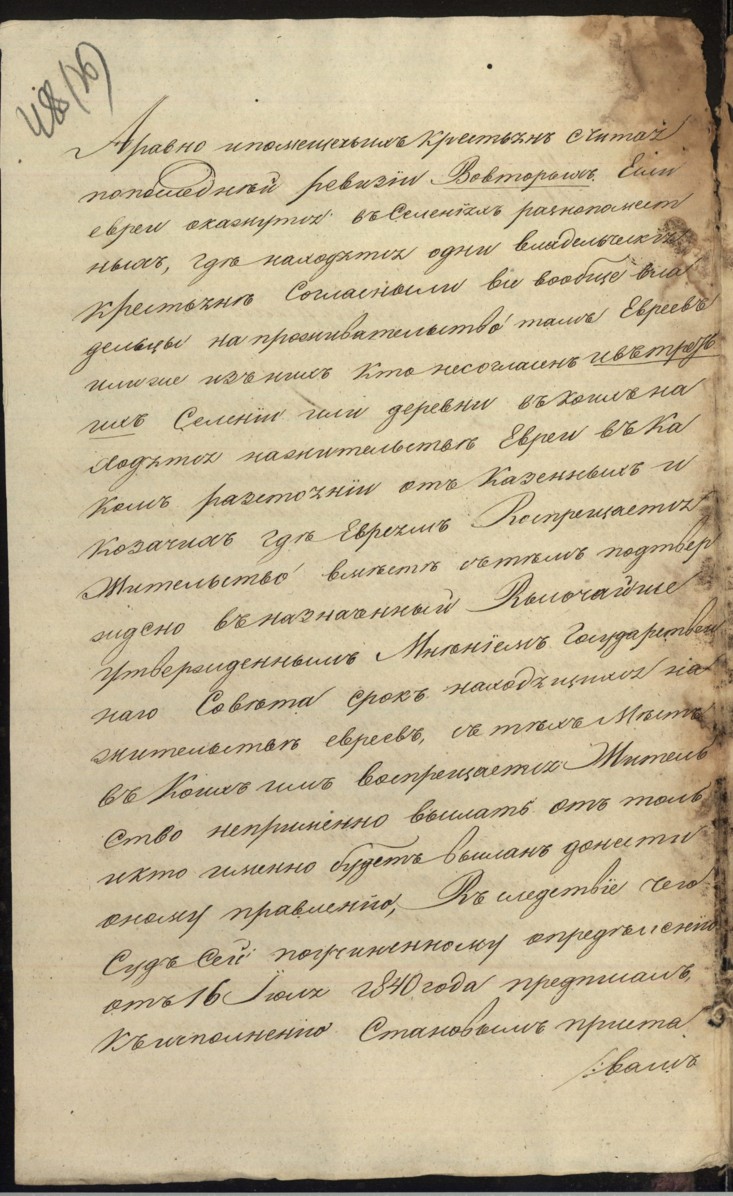 488 (26)
А равно ипомещечьихъ Крестьянъ считая
попоследнѣй ревизіи Вовторыхъ. Если
евреи окажутся въ Селеніяхъ разнопомест
ныхъ, гдѣ находятся одни владельческія
Крестьянѣ Согласныли все вообще вла
дельцы на прожывательство тамъ Евреевъ
илиже изъ нихъ кто несогласенъ ивътреть
ихъ Селеніи или деревни въкоихъ на
ходятся нажительстве Евреи въ Ка
комъ разстояніи отъ Казенныхъ и
козачихъ где Евреямъ Воспрещается
Жительство вместе сътемъ подтвер
ждено въназначенный Высочайше
утвержденнымъ Мненіемъ Государствен
наго Совета срокъ находящихся на
жительстве евреевъ, съ техъ Местъ
въ Коихъ имъ воспрещается Житель
ство непременно выслать отъ толь
икто именно будетъ высланъ донести
оному правленію, Въ следствіе чего
Судъ Сей поучиненному определенію
отъ 16 Іюля 1840 года предписалъ,
къ исполненію Становымъ приста
/:вамъ